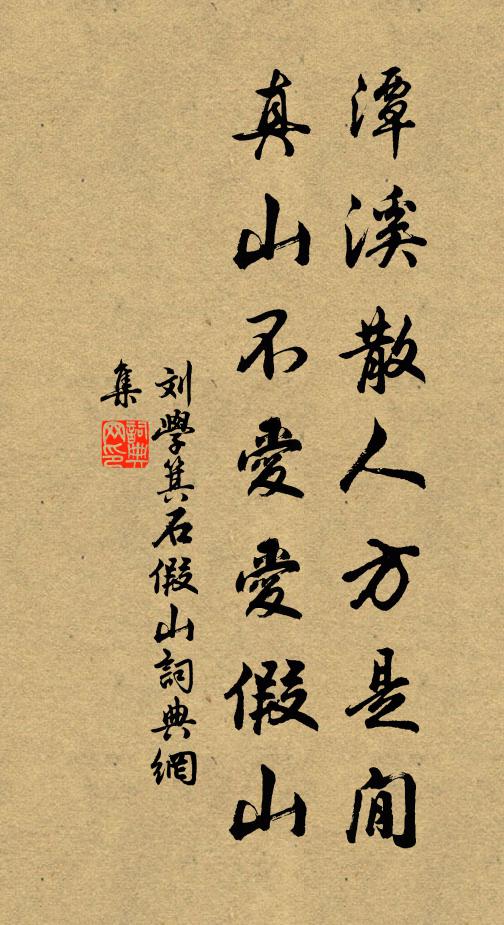 潭溪散人方是閒
真山不愛愛假山
刘學箕石假山詞典網
集
詞典
网印